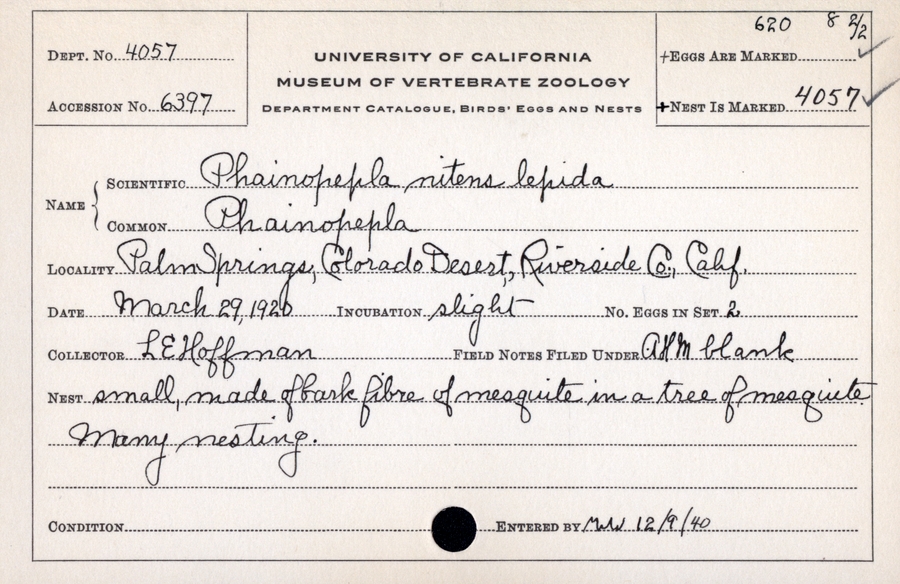 620 8 2/2
DEPT. NO. 4057
UNIVERSITY OF CALIFORNIA
+EGGS ARE MARKED ✓
MUSEUM OF VERTEBRATE ZOOLOGY
ACCESSION NO. 6397
DEPARTMENT CATALOGUE, BIRDS' EGGS AND NESTS
+NEST IS MARKED 4057 ✓
NAME { SCIENTIFIC Phainopepla nitens lepida
COMMON Phainopepla
LOCALITY Palm Springs, Colorado Desert, Riverside Co., Calif.
DATE March 29, 1920 INCUBATION slight NO. EGGS IN SET 2
COLLECTOR L E Hoffman FIELD NOTES FILED UNDER blank
NEST small, made of bark fibre of mesquite in a tree of mesquite
Many nesting.
CONDITION ENTERED BY 12/9/40